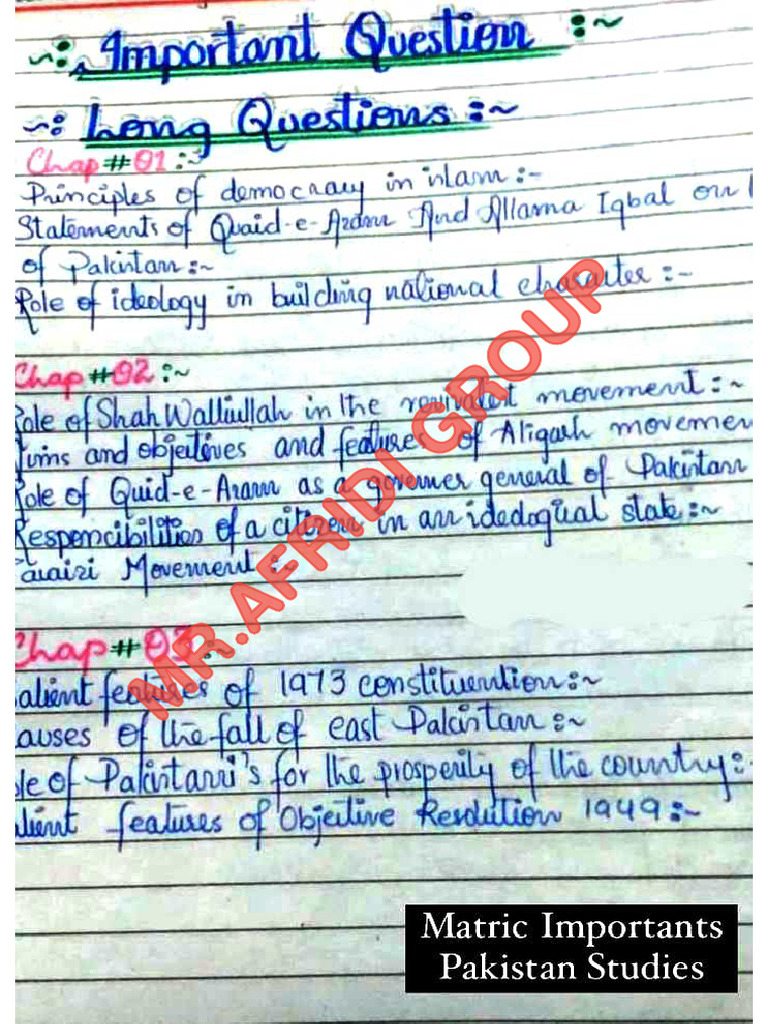 ~: Important Question :~
~: Long Questions :~
Chap #01 :~
Principles of democracy in islam :-
Statements of Quaid-e-Azam And Allama Iqbal on
of Pakistan :~
Role of ideology in building national character :-
Chap #02 :~
Role of Shah Walliullah in the movement :~
Aims and objectives and features of Aligarh movemen
Role of Quid-e-Azam as a governer general of Pakistan
Responcibilities of a citizen in an idedogical state :~
Faraizi Movement :~
Chap #03 :~
alient features of 1973 constituention :~
auses of the fall of east Pakistan :~
le of Pakistani's for the prosperity of the country :-
lient features of Objective Resdution 1949 :~
MR.AFRIDI GROUP
Matric Importants
Pakistan Studies